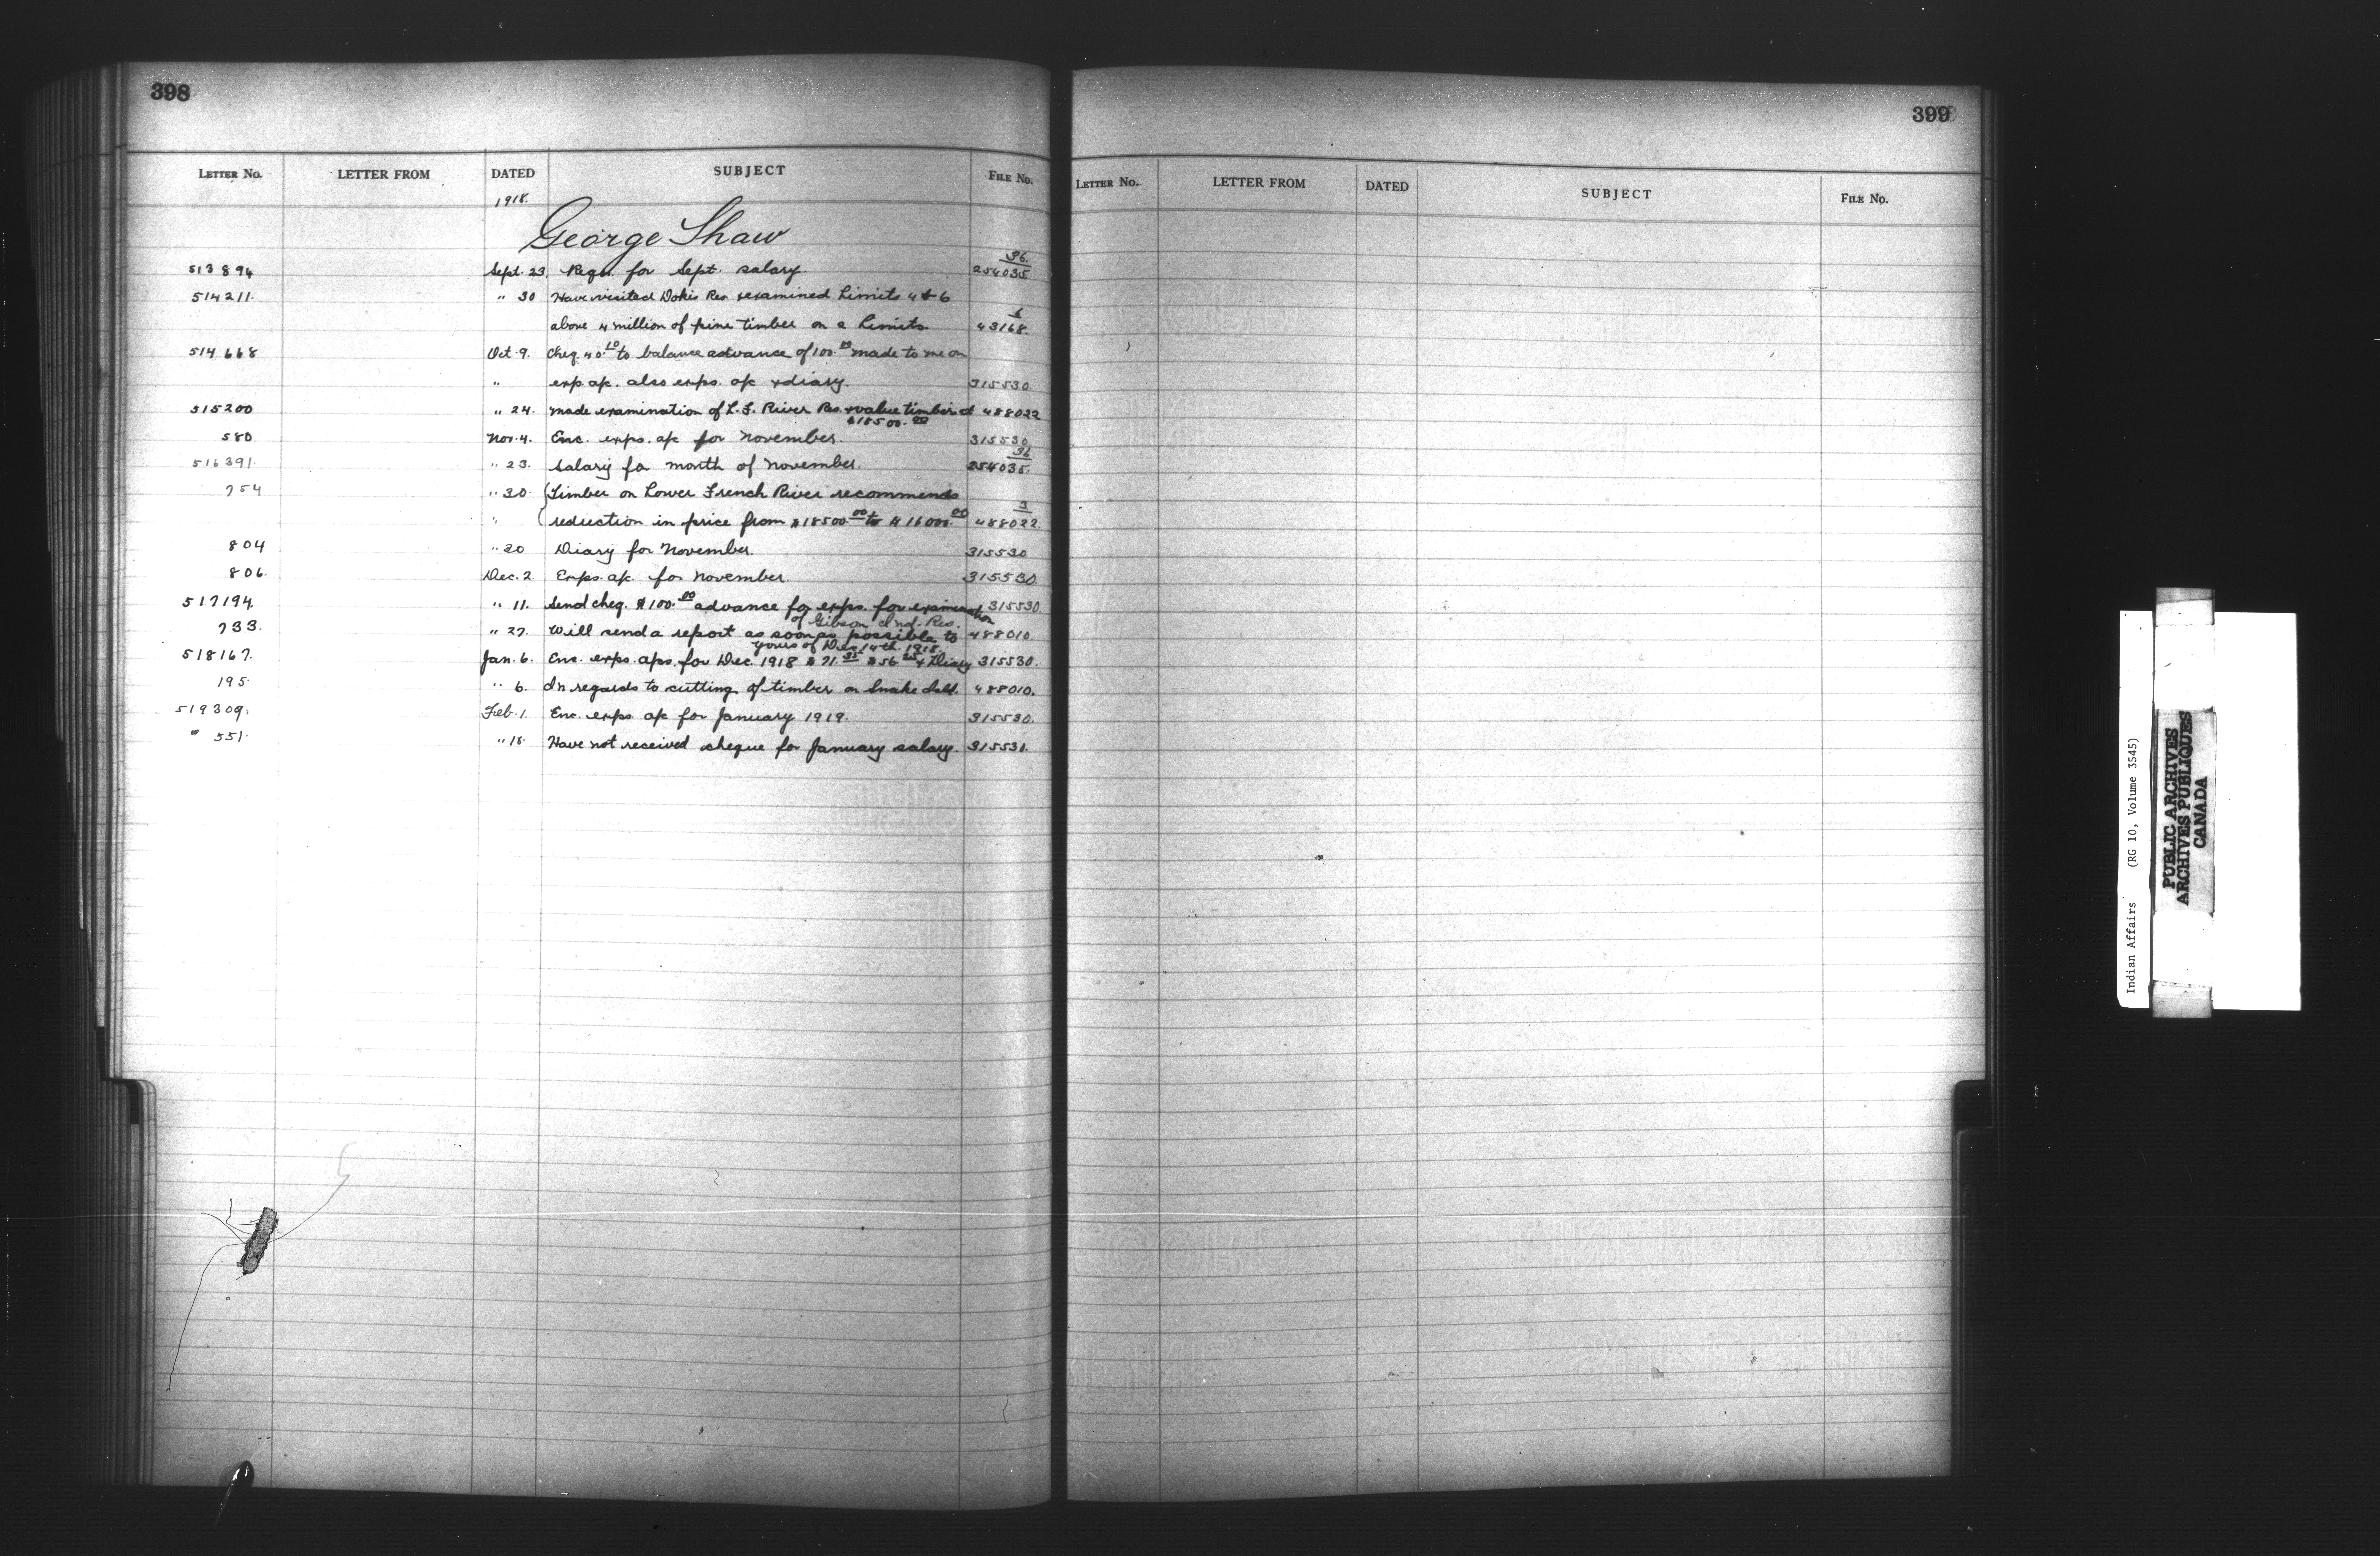 398
LETTER NO. LETTER FROM DATED SUBJECT FILE NO.
1918.
George Shaw
36.
513894 Sept. 23. Reqn. for Sept. salary. 254035
514211. " 30 Have visited Dokis Res. & examined Limits 4 & 6
above 4 million of pine timber on 2 Limits. 43168.
514668 Oct. 9. Cheq. 40.10 to balance advance of 100.00 made to me on
" exp. a/c. also exps. a/c & diary. 315530.
515200 " 24. Made examination of L. F. River Res. & value timber at 488022
$18500.00
580 Nov. 4. Enc. exps. a/c for November. 315530.
36
516391. " 23. Salary for month of November. 254035.
754 " 30. Timber on Lower French River recommends
3
" reduction in price from $18500.00 to $16000.00 488022.
804 " 20 Diary for November. 315530
806. Dec. 2 Exps. a/c. for November. 315530.
517194. " 11. Send cheq. $100.00 advance for exps. for examination 315530.
of Gibson Ind. Res.
733. " 27. Will send a report as soon as possible to 488010.
yours of Dec. 14th. 1918.
518167. Jan. 6. Enc. exps. a/cs. for Dec. 1918 $71.35 $56.25 & Diary 315530.
195. " 6. In regards to cutting of timber on Snake Isld. 488010.
519309. Feb. 1. Enc. exps a/c for January 1919. 315530.
" 551. " 18. Have not received cheque for January salary. 315531.
399
LETTER NO. LETTER FROM DATED SUBJECT FILE NO.
Indian Affairs (RG 10, Volume 3545)
PUBLIC ARCHIVES
ARCHIVES PUBLIQUES
CANADA